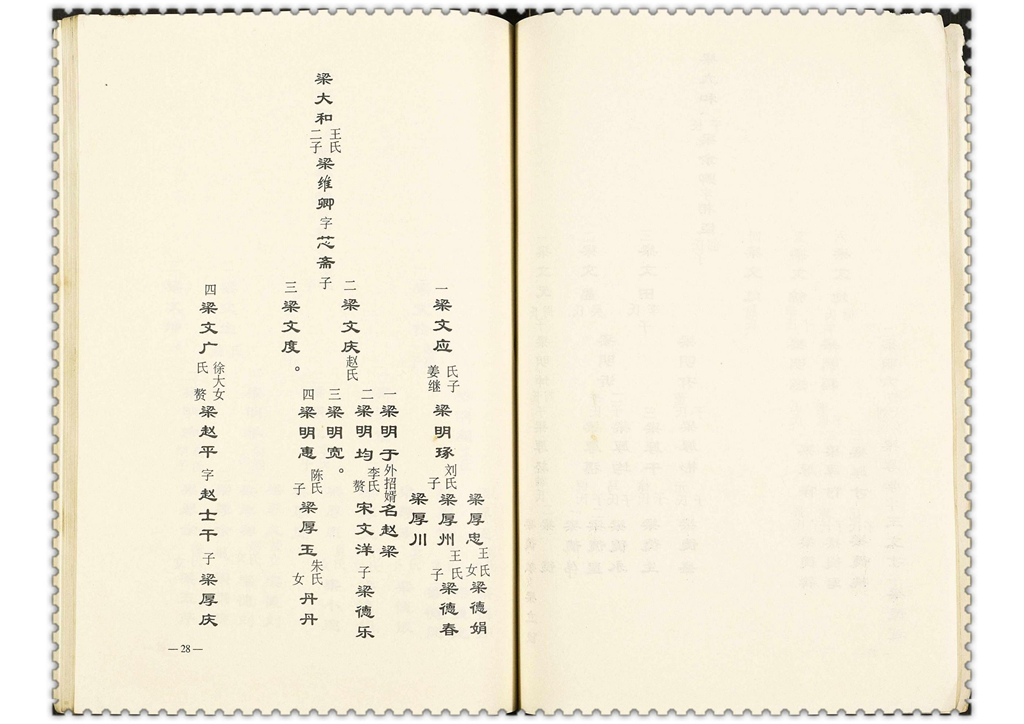 梁大和王氏二子梁维卿字芯斋子
一梁文应姜氏继子梁明琢刘氏子
梁厚忠王氏女梁德娟
梁厚州王氏子梁德春
梁厚川
二梁文庆赵氏
一梁明于外招婿名赵梁
二梁明均李氏赘宋文洋子梁德乐
三梁明宽。
四梁明惠陈氏子梁厚玉朱氏女丹丹
三梁文度。
四梁文广徐氏大女赘梁赵平字赵士干子梁厚庆
—28—